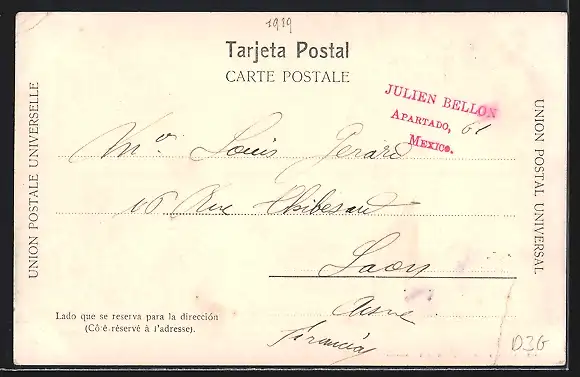 1919
Tarjeta Postal
CARTE POSTALE
JULIEN BELLON
APARTADO, 61
MEXICO.
UNION POSTALE UNIVERSELLE
UNION POSTAL UNIVERSAL
Mr Louis Gerard
16 Rue
Laon
Aisne
Francia
Lado que se reserva para la dirección
(Côté réservé à l'adresse).
D3G